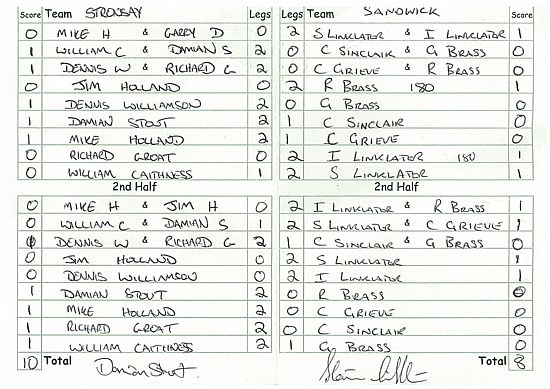 Score Team STRONSAY Legs Legs Team SANDWICK Score
0 MIKE H & GARRY D 0 2 S LINKLATER & I LINKLATER 1
1 WILLIAM C & DAMIAN S 2 0 C SINCLAIR & G BRASS 0
1 DENNIS W & RICHARD G 2 0 C GRIEVE & R BRASS 0
0 JIM HOLLAND 0 2 R BRASS 180 1
1 DENNIS WILLIAMSON 2 0 G BRASS 0
1 DAMIAN STOUT 2 1 C SINCLAIR 0
1 MIKE HOLLAND 2 1 C GRIEVE 0
0 RICHARD GROAT 0 2 I LINKLATER 180 1
0 WILLIAM CAITHNESS 1 2 S LINKLATER 1
2nd Half 2nd Half
0 MIKE H & JIM H 0 2 I LINKLATER & R BRASS 1
0 WILLIAM C & DAMIAN S 1 2 S LINKLATER & C GRIEVE 1
1 DENNIS W & RICHARD G 2 1 C SINCLAIR & G BRASS 0
0 JIM HOLLAND 0 2 S LINKLATER 1
0 DENNIS WILLIAMSON 0 2 I LINKLATER 1
1 DAMIAN STOUT 2 0 R BRASS 0
1 MIKE HOLLAND 2 0 C GRIEVE 0
1 RICHARD GROAT 2 0 C SINCLAIR 0
1 WILLIAM CAITHNESS 2 1 G BRASS 0
10 Total Damian Stout Total 8